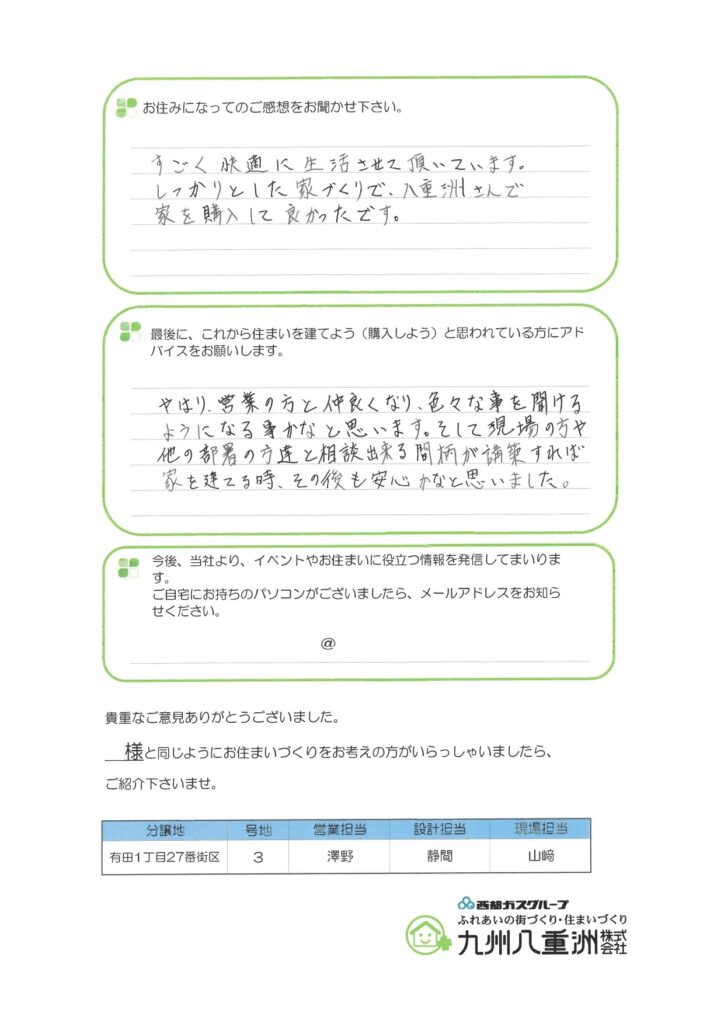 お住みになってのご感想をお聞かせ下さい。
すごく快適に生活させて頂いています。
しっかりとした家づくりで、八重洲さんで
家を購入して良かったです。
最後に、これから住まいを建てよう（購入しよう）と思われている方にアド
バイスをお願いします。
やはり、営業の方と仲良くなり、色々な事を聞ける
ようになる事かなと思います。そして現場の方や
他の部署の方達と相談出来る間柄が講築すれば
家を建てる時、その後も安心かなと思いました。
今後、当社より、イベントやお住まいに役立つ情報を発信してまいりま
す。
ご自宅にお持ちのパソコンがございましたら、メールアドレスをお知ら
せください。
@
貴重なご意見ありがとうございました。
様と同じようにお住まいづくりをお考えの方がいらっしゃいましたら、
ご紹介下さいませ。
分譲地 号地 営業担当 設計担当 現場担当
有田1丁目27番街区 3 澤野 静間 山﨑
西部ガスグループ
ふれあいの街づくり・住まいづくり
九州八重洲株式会社